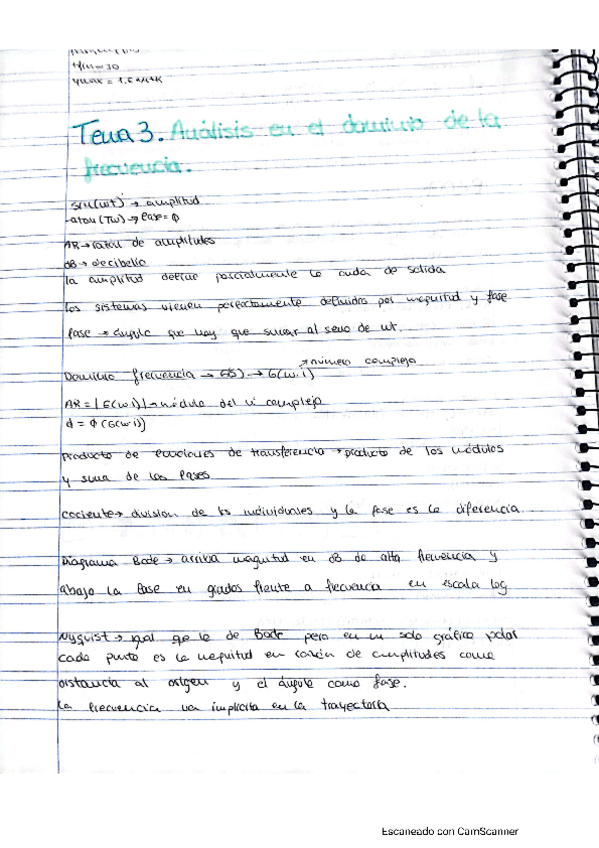 Ymax = 1.
Tema 3. Análisis en el dominio de la
frecuencia.
sen(wt) → amplitud
-atan(Tw) → fase = φ
AR → razón de amplitudes
dB → decibelio
la amplitud define parcialmente la onda de salida
los sistemas vienen perfectamente definidos por magnitud y fase
fase → ángulo que hay que sumar al seno de wt.
→ número complejo
Dominio frecuencia → G(S) → G(w·i)
AR = |G(w·i)| → módulo del nº complejo
φ = φ(G(w·i))
Producto de funciones de transferencia → producto de los módulos
y suma de las fases
cociente → division de los individuales y la fase es la diferencia
Diagrama Bode → arriba magnitud en dB de alta frecuencia y
abajo la fase en grados frente a frecuencia en escala log
Nyquist → igual que le de Bode pero en un solo gráfico polar
cada punto es la magnitud en razón de amplitudes como
distancia al origen y el ángulo como fase.
La frecuencia va implícita en la trayectoria
Escaneado con CamScanner